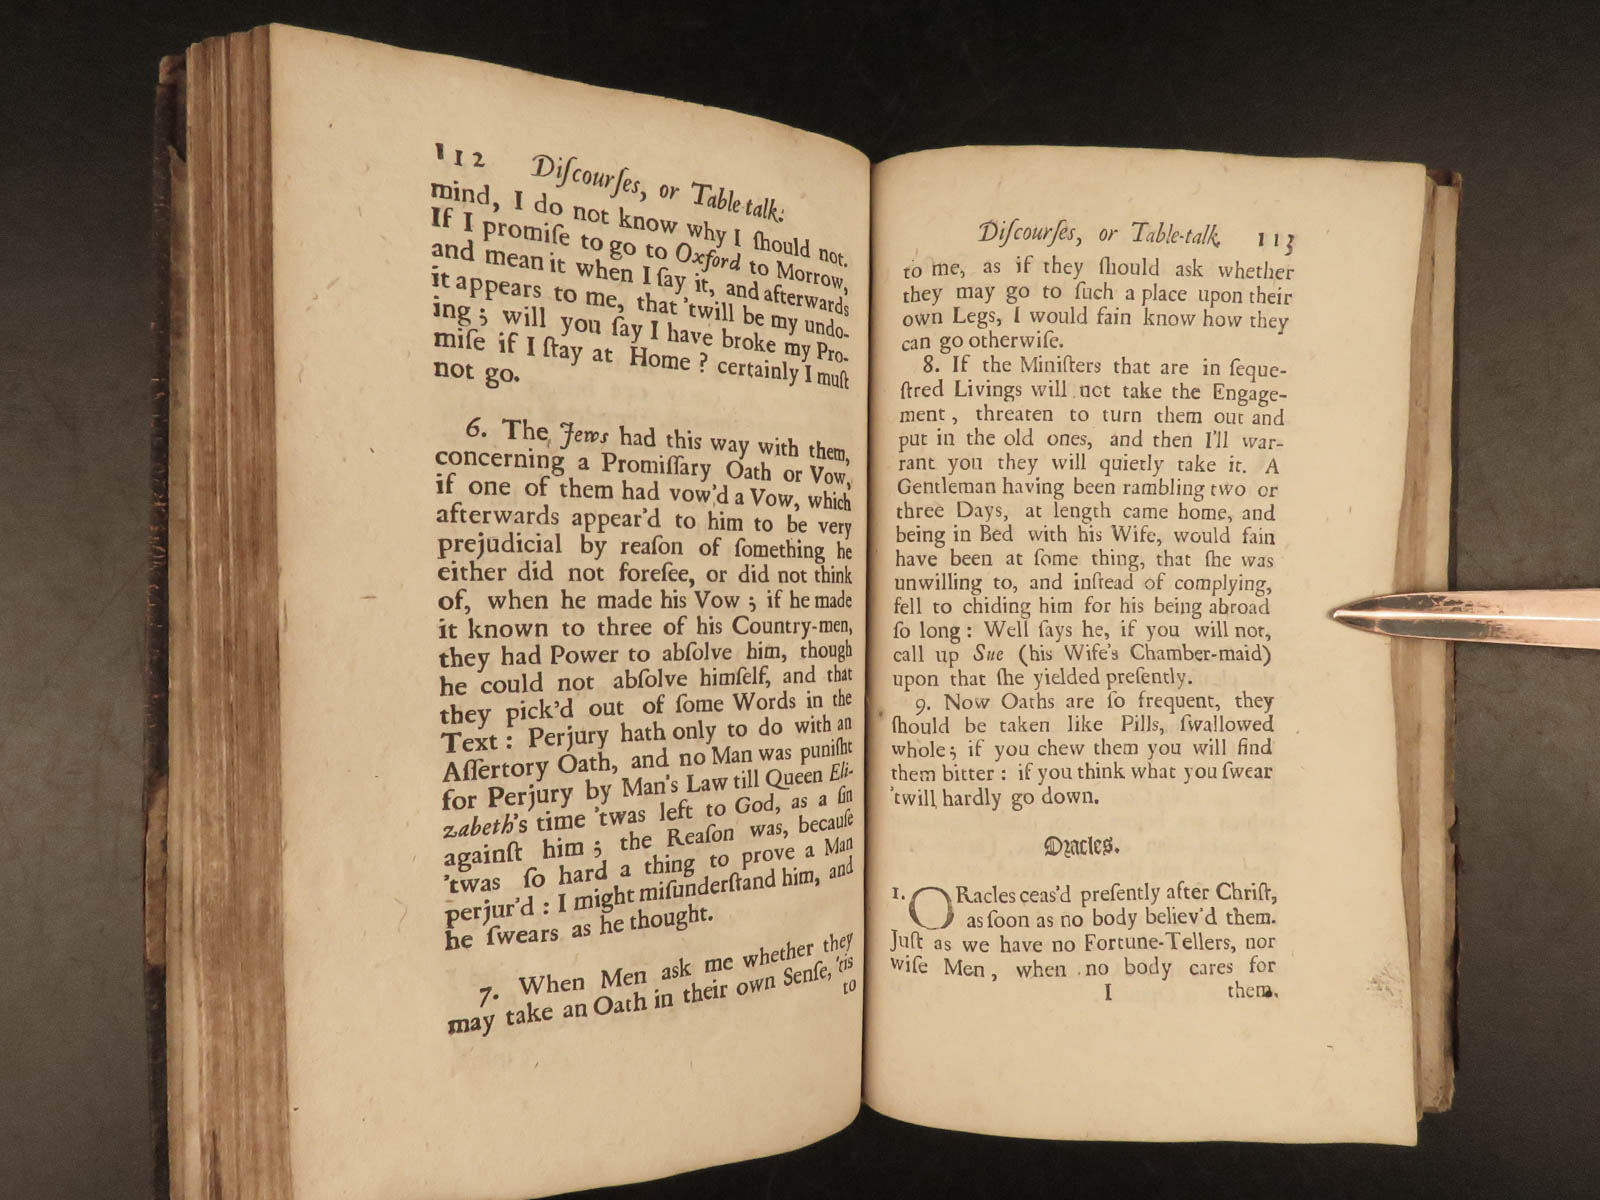 112 Diſcourſes, or Table-talk.
mind, I do not know why I ſhould not.
If I promiſe to go to Oxford to Morrow,
and mean it when I ſay it, and afterwards
it appears to me, that 'twill be my undo-
ing; will you ſay I have broke my Pro-
miſe if I ſtay at Home? certainly I muſt
not go.
6. The Jews had this way with them,
concerning a Promiſſary Oath or Vow,
if one of them had vow'd a Vow, which
afterwards appear'd to him to be very
prejudicial by reaſon of ſomething he
either did not foreſee, or did not think
of, when he made his Vow; if he made
it known to three of his Country-men,
they had Power to abſolve him, though
he could not abſolve himſelf, and that
they pick'd out of ſome Words in the
Text: Perjury hath only to do with an
Aſſertory Oath, and no Man was puniſht
for Perjury by Man's Law till Queen Eli-
zabeth's time 'twas left to God, as a ſin
againſt him; the Reaſon was, becauſe
'twas ſo hard a thing to prove a Man
perjur'd: I might miſunderſtand him, and
he ſwears as he thought.
7. When Men ask me whether they
may take an Oath in their own Senſe, 'tis
to
Diſcourſes, or Table-talk. 113
to me, as if they ſhould ask whether
they may go to ſuch a place upon their
own Legs, I would fain know how they
can go otherwiſe.
8. If the Miniſters that are in ſeque-
ſtred Livings will not take the Engage-
ment, threaten to turn them out and
put in the old ones, and then I'll war-
rant you they will quietly take it. A
Gentleman having been rambling two or
three Days, at length came home, and
being in Bed with his Wife, would fain
have been at ſome thing, that ſhe was
unwilling to, and inſtead of complying,
fell to chiding him for his being abroad
ſo long: Well ſays he, if you will not,
call up Sue (his Wife's Chamber-maid)
upon that ſhe yielded preſently.
9. Now Oaths are ſo frequent, they
ſhould be taken like Pills, ſwallowed
whole; if you chew them you will find
them bitter: if you think what you ſwear
'twill hardly go down.
Oracles.
1. ORacles ceas'd preſently after Chriſt,
as ſoon as no body believ'd them.
Juſt as we have no Fortune-Tellers, nor
wiſe Men, when no body cares for
I them.